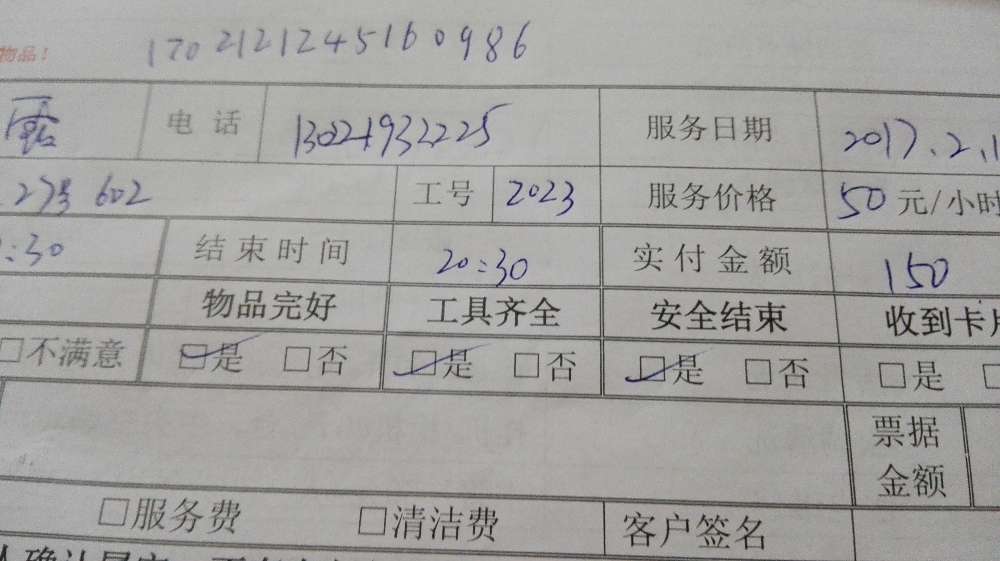 物品！ 1702121245160986
露 电话 13021932225 服务日期 2017.2.1
27号 602 工号 2023 服务价格 50元/小时
:30 结束时间 20:30 实付金额 150
物品完好 工具齐全 安全结束 收到卡片
□不满意 ☑是 □否 ☑是 □否 ☑是 □否 □是 □
票据
金额
□服务费 □清洁费 客户签名